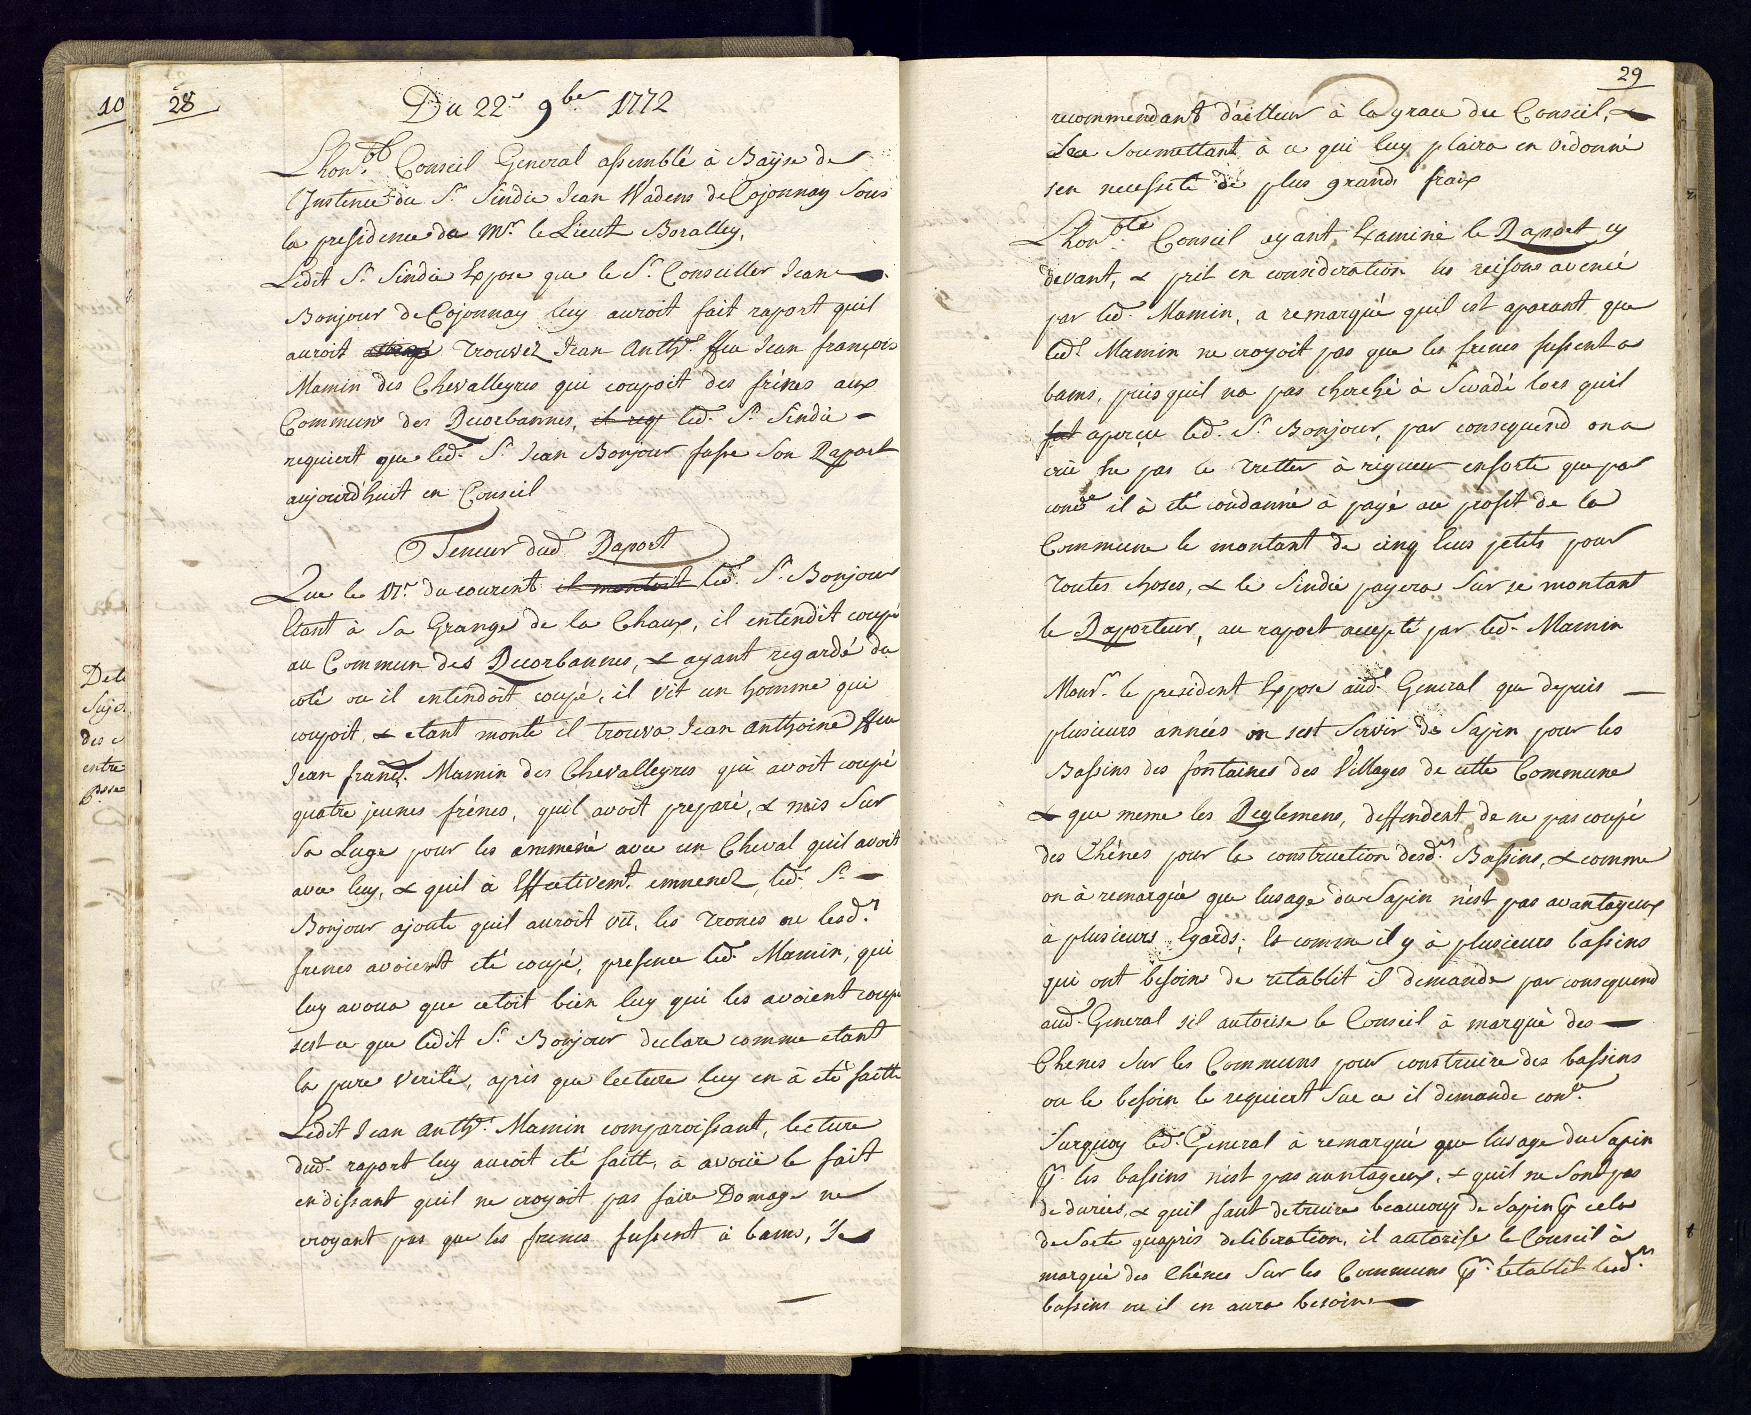 10
28
Du 22e 9ber 1772
Lhonble Conseil General assemblé à Bayse de
l'Instence du Sr. Sindic Jean Wadens de Cojonnay Sous
la presidence de Mr. le Lieut Boralley,
Ledit Sr. Sindic Expose que le Sr. Conseiller Jean
Bonjour de Cojonnay luy auroit fait raport quil
auroit trouvez Jean Anth. ffeu Jean françois
Mamin des Chevalleyres qui coupoit des frênes aux
Commun des Quorbannes, et req led. Sr. Sindic
requiert que led. Sr. Jean Bonjour fasse Son Raport
aujourd'huit en Conseil
Teneur dud Raport
Que le 17e du courent il montoit led. Sr. Bonjour
Etant à Sa Grange de la Chaux, il entendit coupé
au Commun des Quorbannes, & ayant regardé du
coté ou il entendoit coupé, il vit un homme qui
coupoit, & etant monté il trouva Jean Anthoine ffeu
Jean franç. Mamin des Chevalleyres qui avoit coupé
quatre jeunes frénes, quil avoit preparé, & mis Sur
Sa Luge pour les ammené avec un Cheval quil avoit
avec luy, & quil à Effectivemt. emmenez, led. Sr.
Bonjour ajoute quil auroit vû, les troncs ou lesd.
frenes avoient eté coupé, presence led. Mamin, qui
luy avoua que cetoit bien luy qui les avoient coupe
sest ce que ledit Sr. Bonjour declare comme etant
la pure verité, apris que lecture luy en à eté faitte
Ledit Jean Anth. Mamin comparoissant, lecture
dud. raport luy auroit eté faitte, à avoüe le fait
en dissant quil ne croyoit pas faire Domage ne
croyant pas que les frenes fussent à bams, Se
Dete
Sujo
des c
entre
29
recommendant d'ailleur à la grace du Conseil, &
Se Soumettant à ce qui luy plaira en ordonné
sen necesseté de plus grand fraix
Lhonble Conseil ayant Examiné le Rapdet cy
devant, & prit en consideration les reisons avencé
par led. Mamin, a remarqué quil est aparant que
led. Mamin ne croyoit pas que les frenes fussent a
bams, puis quil na pas cherché à Sevadé lors quil
fut aperçu led. Sr. Bonjour, par consequend on a
crû ne pas le tretter à rigueur ensorte que par
conce il à eté condanné à payé au profit de la
Commune le montant de cinq beus petits pour
toutes choses, & le Sindic payera Sur se montant
le Raporteur, au raport accepté par led. Mamin
Monsr. le president Expose aud. General que depuis
plusieurs années on sest Servir de Sapin pour les
Bassins des fontaines des Villages de cette Commune
& que meme les Reglemens, deffendent de ne pas coupé
des Chênes pour la construction desd. Bassins, & comme
on à remarqué que lusage du Sapin n'est pas avantageux
à plusieurs Egards; Et comme il y à plusieurs bassins
qui ont besoin de retablit il demande par consequend
aud. General sil autorise le Conseil à marqué des
Chenes Sur les Communs pour construire des bassins
ou le besoin le requiert Sur ce il demande conce.
Surquoy led. General à remarqué que lusage du Sapin
pr. les bassins nest pas avantageux, & quil ne Sont pas
de durées, & quil faut detruire beaucoup de Sapin pr cela
de Sorte quapris deliberation, il autorise le Conseil à
marqué des Chênes Sur les Communs pr. rétablit lesd.
bassins ou il en aura besoin